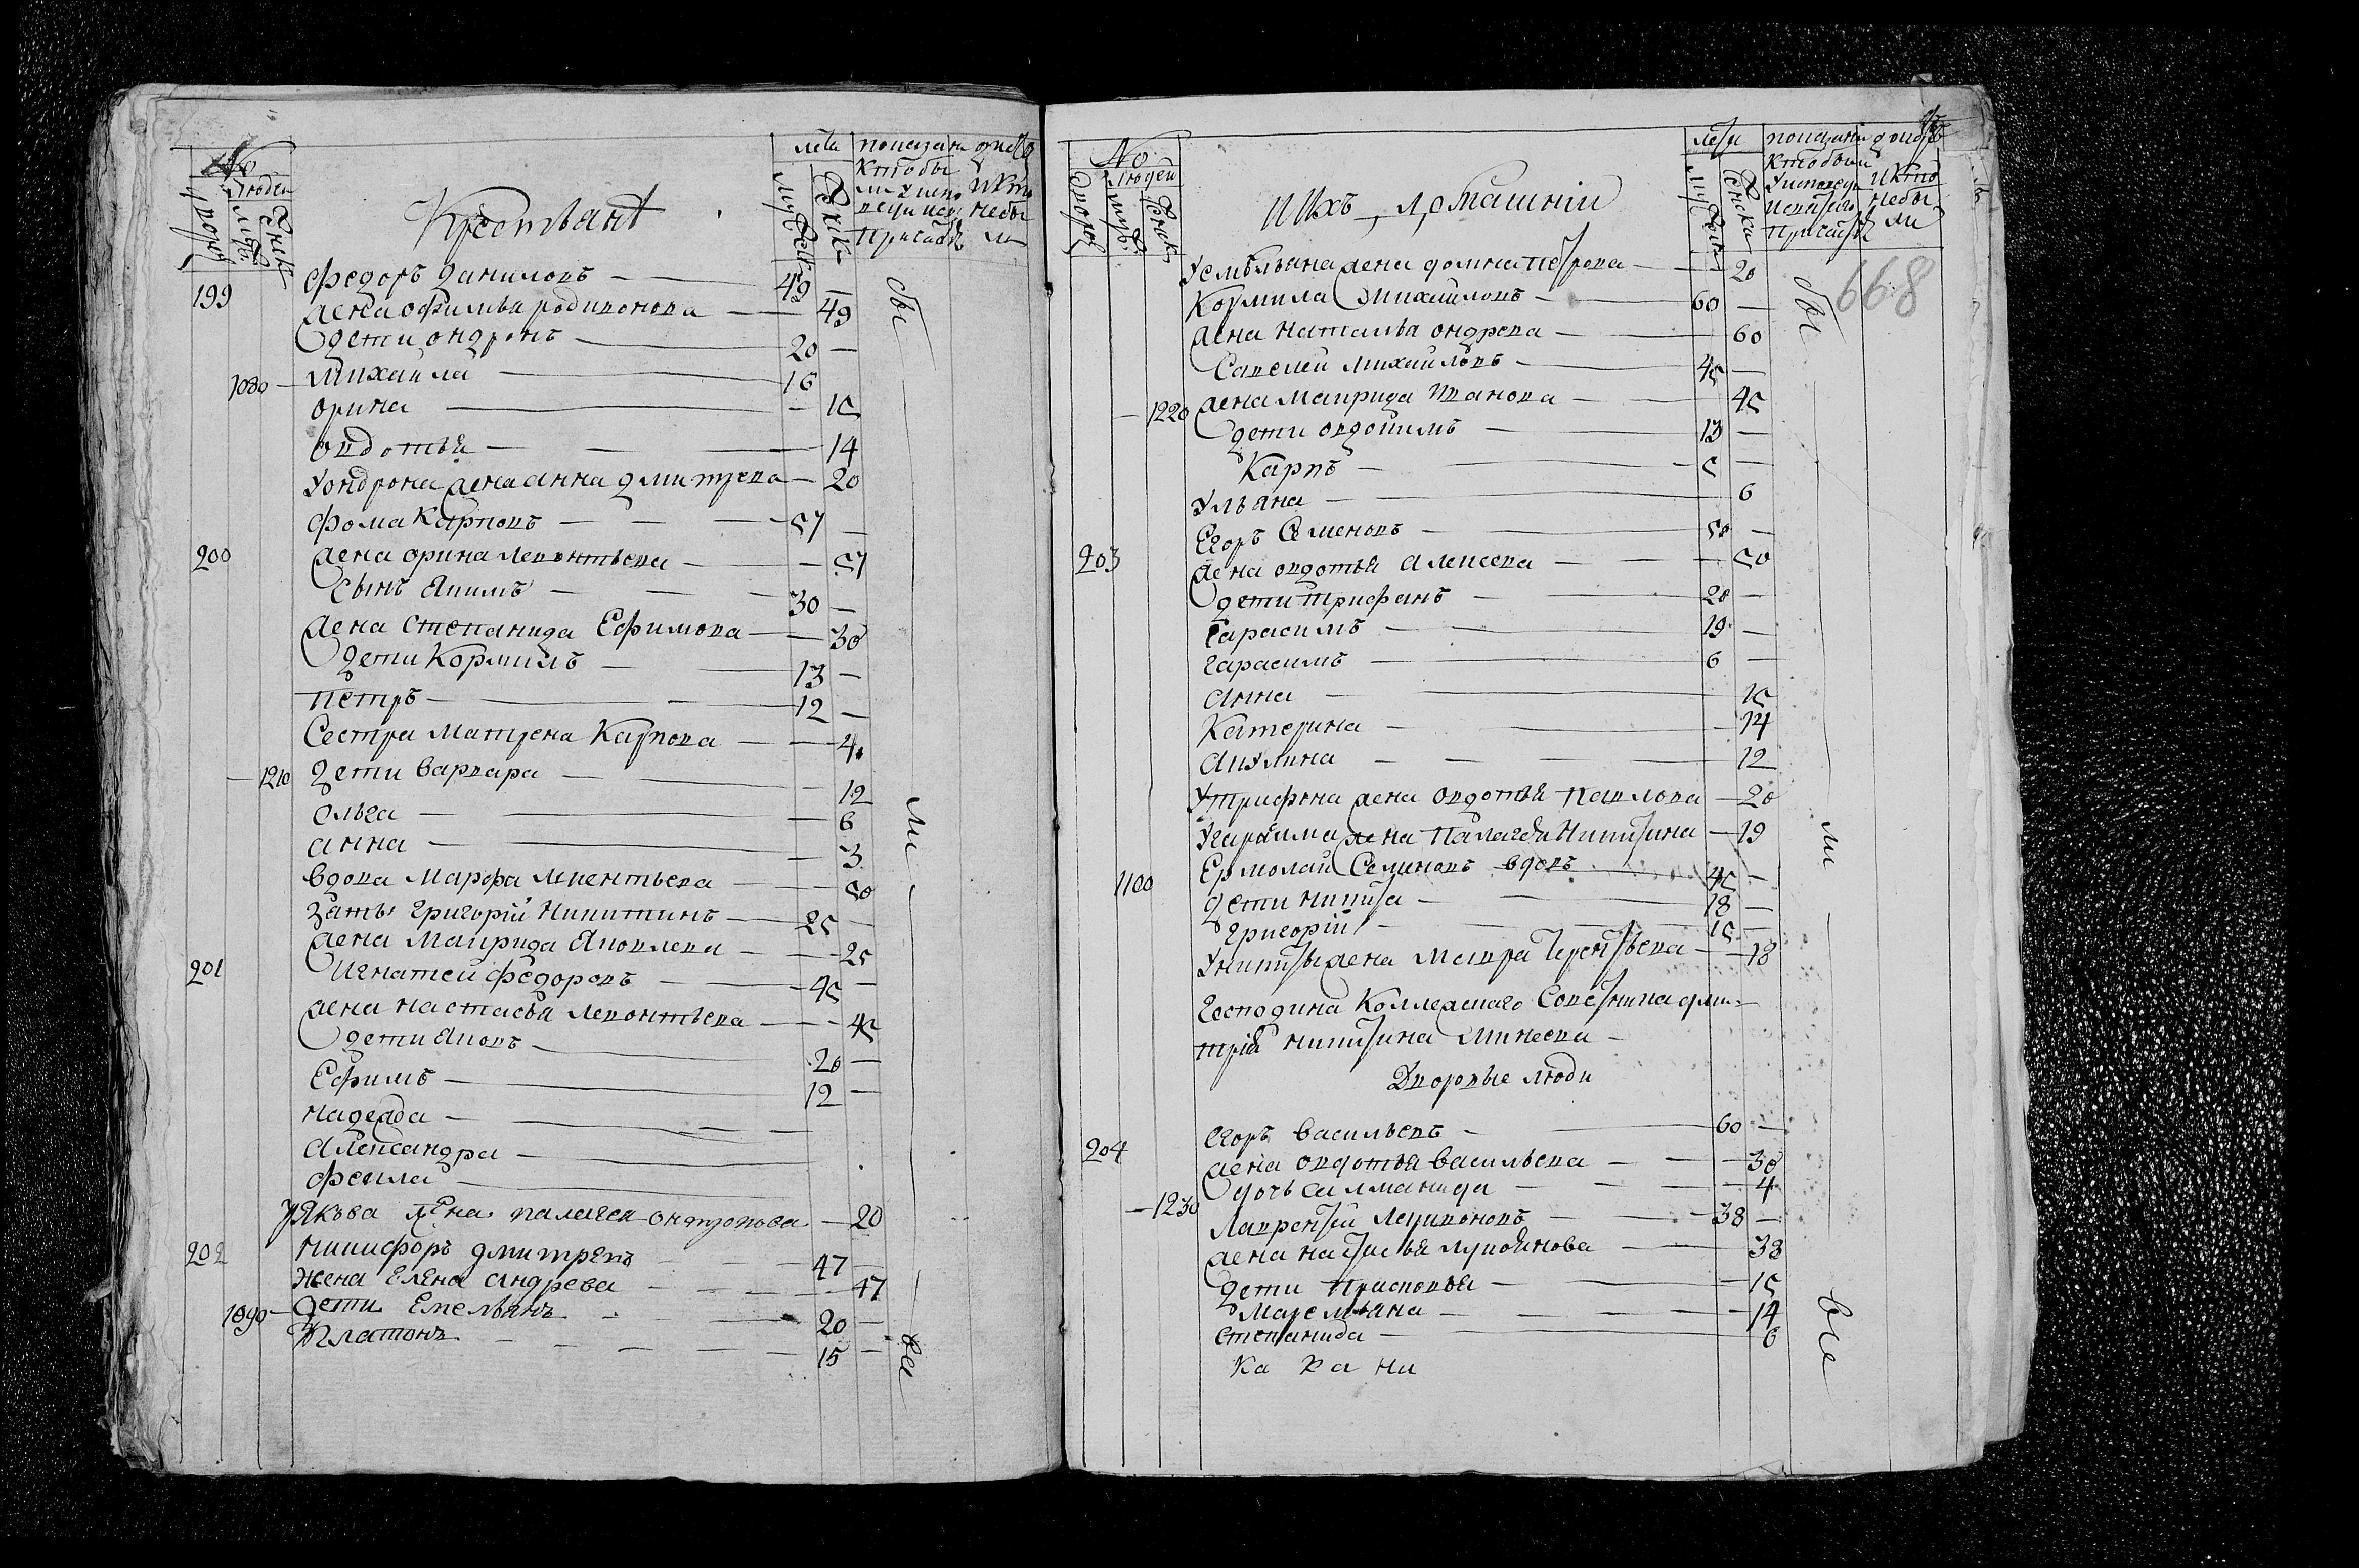 №
Людей
дворов
муж.
женс
Крестьянъ
лета
мужеска
женска
показани д
кто бы
ли у испо
и кто
не бы
ли
причаст
199 Федоръ даниловъ — 49 —
жена офимья родивонова — 49
дети ондронъ — 20 —
1080 — михаила — 16
орина — 15
овдотья — 14
у ондрона жена анна дмитрева — 20
Фома Карповъ — 57 —
200 жена орина левонтьева — 57
сынъ Якимъ — 30 —
жена степанида Ефимова — 30
дети Кормилъ — 13 —
петръ — 12 —
Сестра матрена Карпова — 40
— 1210 дети варвара — 12
ольга — 6
анна — 3
вдова марфа — 50
зять григорий никитинъ — 25 —
жена маврида Яковлева — 25
201 Игнатей федоровъ — 45 —
жена настасья левонтьева — 45
дети Яковъ — 20 —
Ефимъ — 12 —
надежда —
александра —
фекла —
у Якова жена палагея — 20
202 никифоръ дмитревъ — 47 —
жена елена андрева — 47
1090 — дети Емельянъ — 20 —
платонъ — 15 —
бы
ли
ва
№
Людей
дворов
муж.
женск
и ихъ домашнии
лета
муж
женска
показани
кто были
и кто
не бы
ли
668
у емельяна жена домна петрова — 20
Кормила михайловъ — 60 —
жена наталья ондрева — 60
Савелей михайловъ — 45 —
— 1220 жена маврида иванова — 45
дети овдокимъ — 13 —
Карпъ — 5 —
Ульяна — 6
Егоръ Семеновъ — 50 —
203 жена овдотья алексева — 50
дети трифанъ — 20 —
гарасимъ — 19 —
гарасимъ — 6 —
анна — 15
Катерина — 14
акулина — 12
у трифона жена овдотья павлова — 20
у гарасима жена палагея никитина — 19
1100 Ермолай Семеновъ вдовъ — 45 —
дети никита — 18 —
григорий — 15 —
у никиты жена мавра терентьева — 18
господина Коллежскаго Советника дми-
трия никитина
Дворовые люди
204 егоръ васильевъ — 60 —
жена овдотья васильева — 30
— 1230 дочь саламанида — 4
Лаврентий — 38 —
жена наталья — 38
дети прасковья — 15
маремьяна — 14
степанида — 6
бы
ли
вые